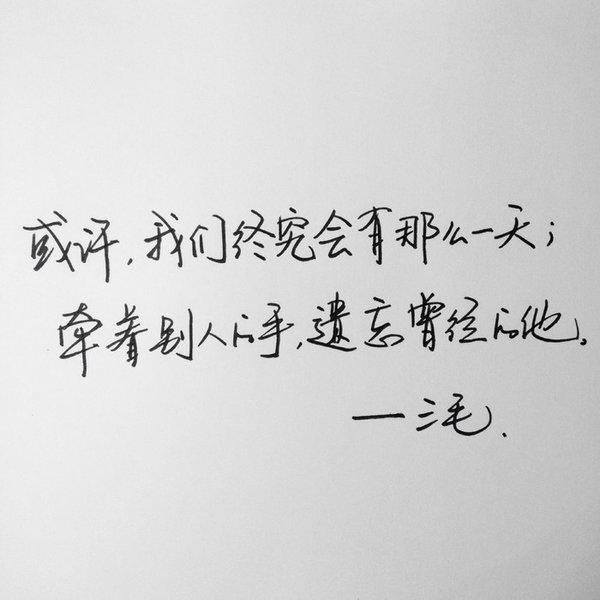 或许,我们终究会有那么一天;
牵着别人的手,遗忘曾经的他。
—三毛.